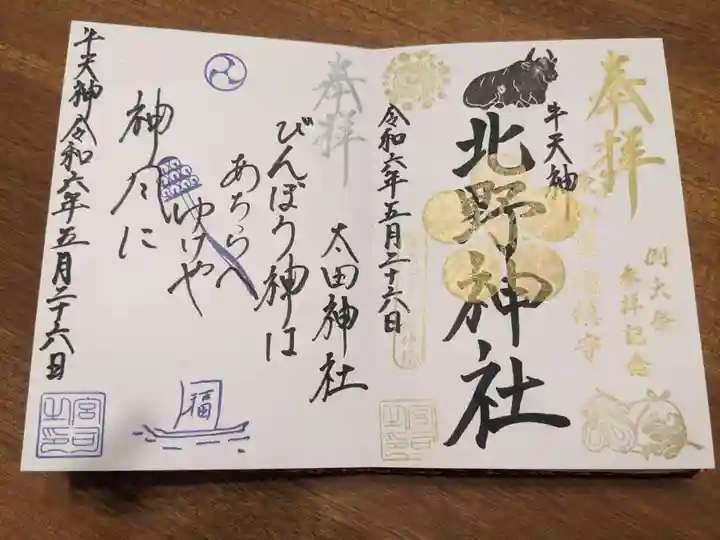 奉拝
例大祭
参拝記念
牛天神
北野神社
令和六年五月二十六日
奉拝
太田神社
びんぼう神は
あちらへ
ゆけや
神々に
福
牛天神令和六年五月二十六日
宮司之印